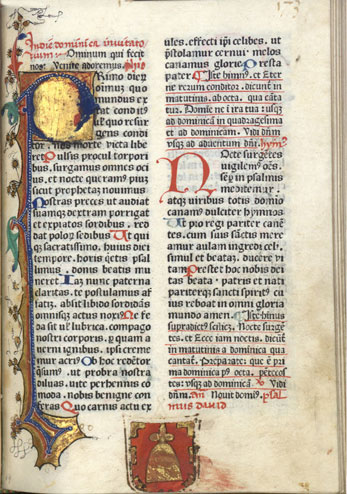 Dominum qui fecit
nos: Venite adoremus.
Primo dierum
omnium quo
mundus ex
tat condit
vel quo resur
gens condi
tor. nos morte victa libe
ret Pulsis procul torpori
bus. surgamus omnes oci
us. et nocte queramus pium
sicut prophetam novimus
Nostras preces ut audiat
suamque dextram porrigat
et expiatos sordibus. red
dat polorum sedibus Ut qui
que sacratissimo. huius diei
tempore. horis quietis psal
limus. donis beatis mu
neret Iam nunc paterna
claritas. te postulamus af
fatim. absit libido sordidans
omnisque actus noxius Ne fe
da sit vel lubrica. compago
nostri corporis. per quam a
verni ignibus. ipsi creme
mur acrius Ob hoc redemptor
quesumus. ut probra nostra
diluas. vite perhennis co
moda. nobis benigne con
feras Quo carnis actu ex
ules. effecti ipsi celibes. ut
prestolamur cernui. melos
canamus glorie Presta
pater Iste hymnus. et Eter
ne rerum conditor. dicuntur in
matutinis
Domine ne in ira tua
ad dominicam in quadragesima
et ad dominicam.
usque ad adventum
Nocte surgentes
vigilemus omnes
semper in psalmis
meditemur.
atque viribus totis domino
canamus dulciter hymnos
Ut pio regi pariter canen
tes. cum suis sanctis mere
amur aulam ingredi celi.
simul et beatam. ducere vi
tam Prestet hoc nobis dei
tas beata. patris et nati
pariterque sancti spiritus. cu
ius reboat in omni gloria
mundo amen. Iste hymnus
supradictus scilicet. Nocte surgen
tes. et Ecce iam noctis. dicuntur
in matutinis a dominica qua
cantatur.
usque ad dominicam
psal
mus david